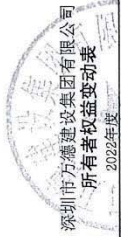 深圳市万德建设集团有限公司
所有者权益变动表
2022年度